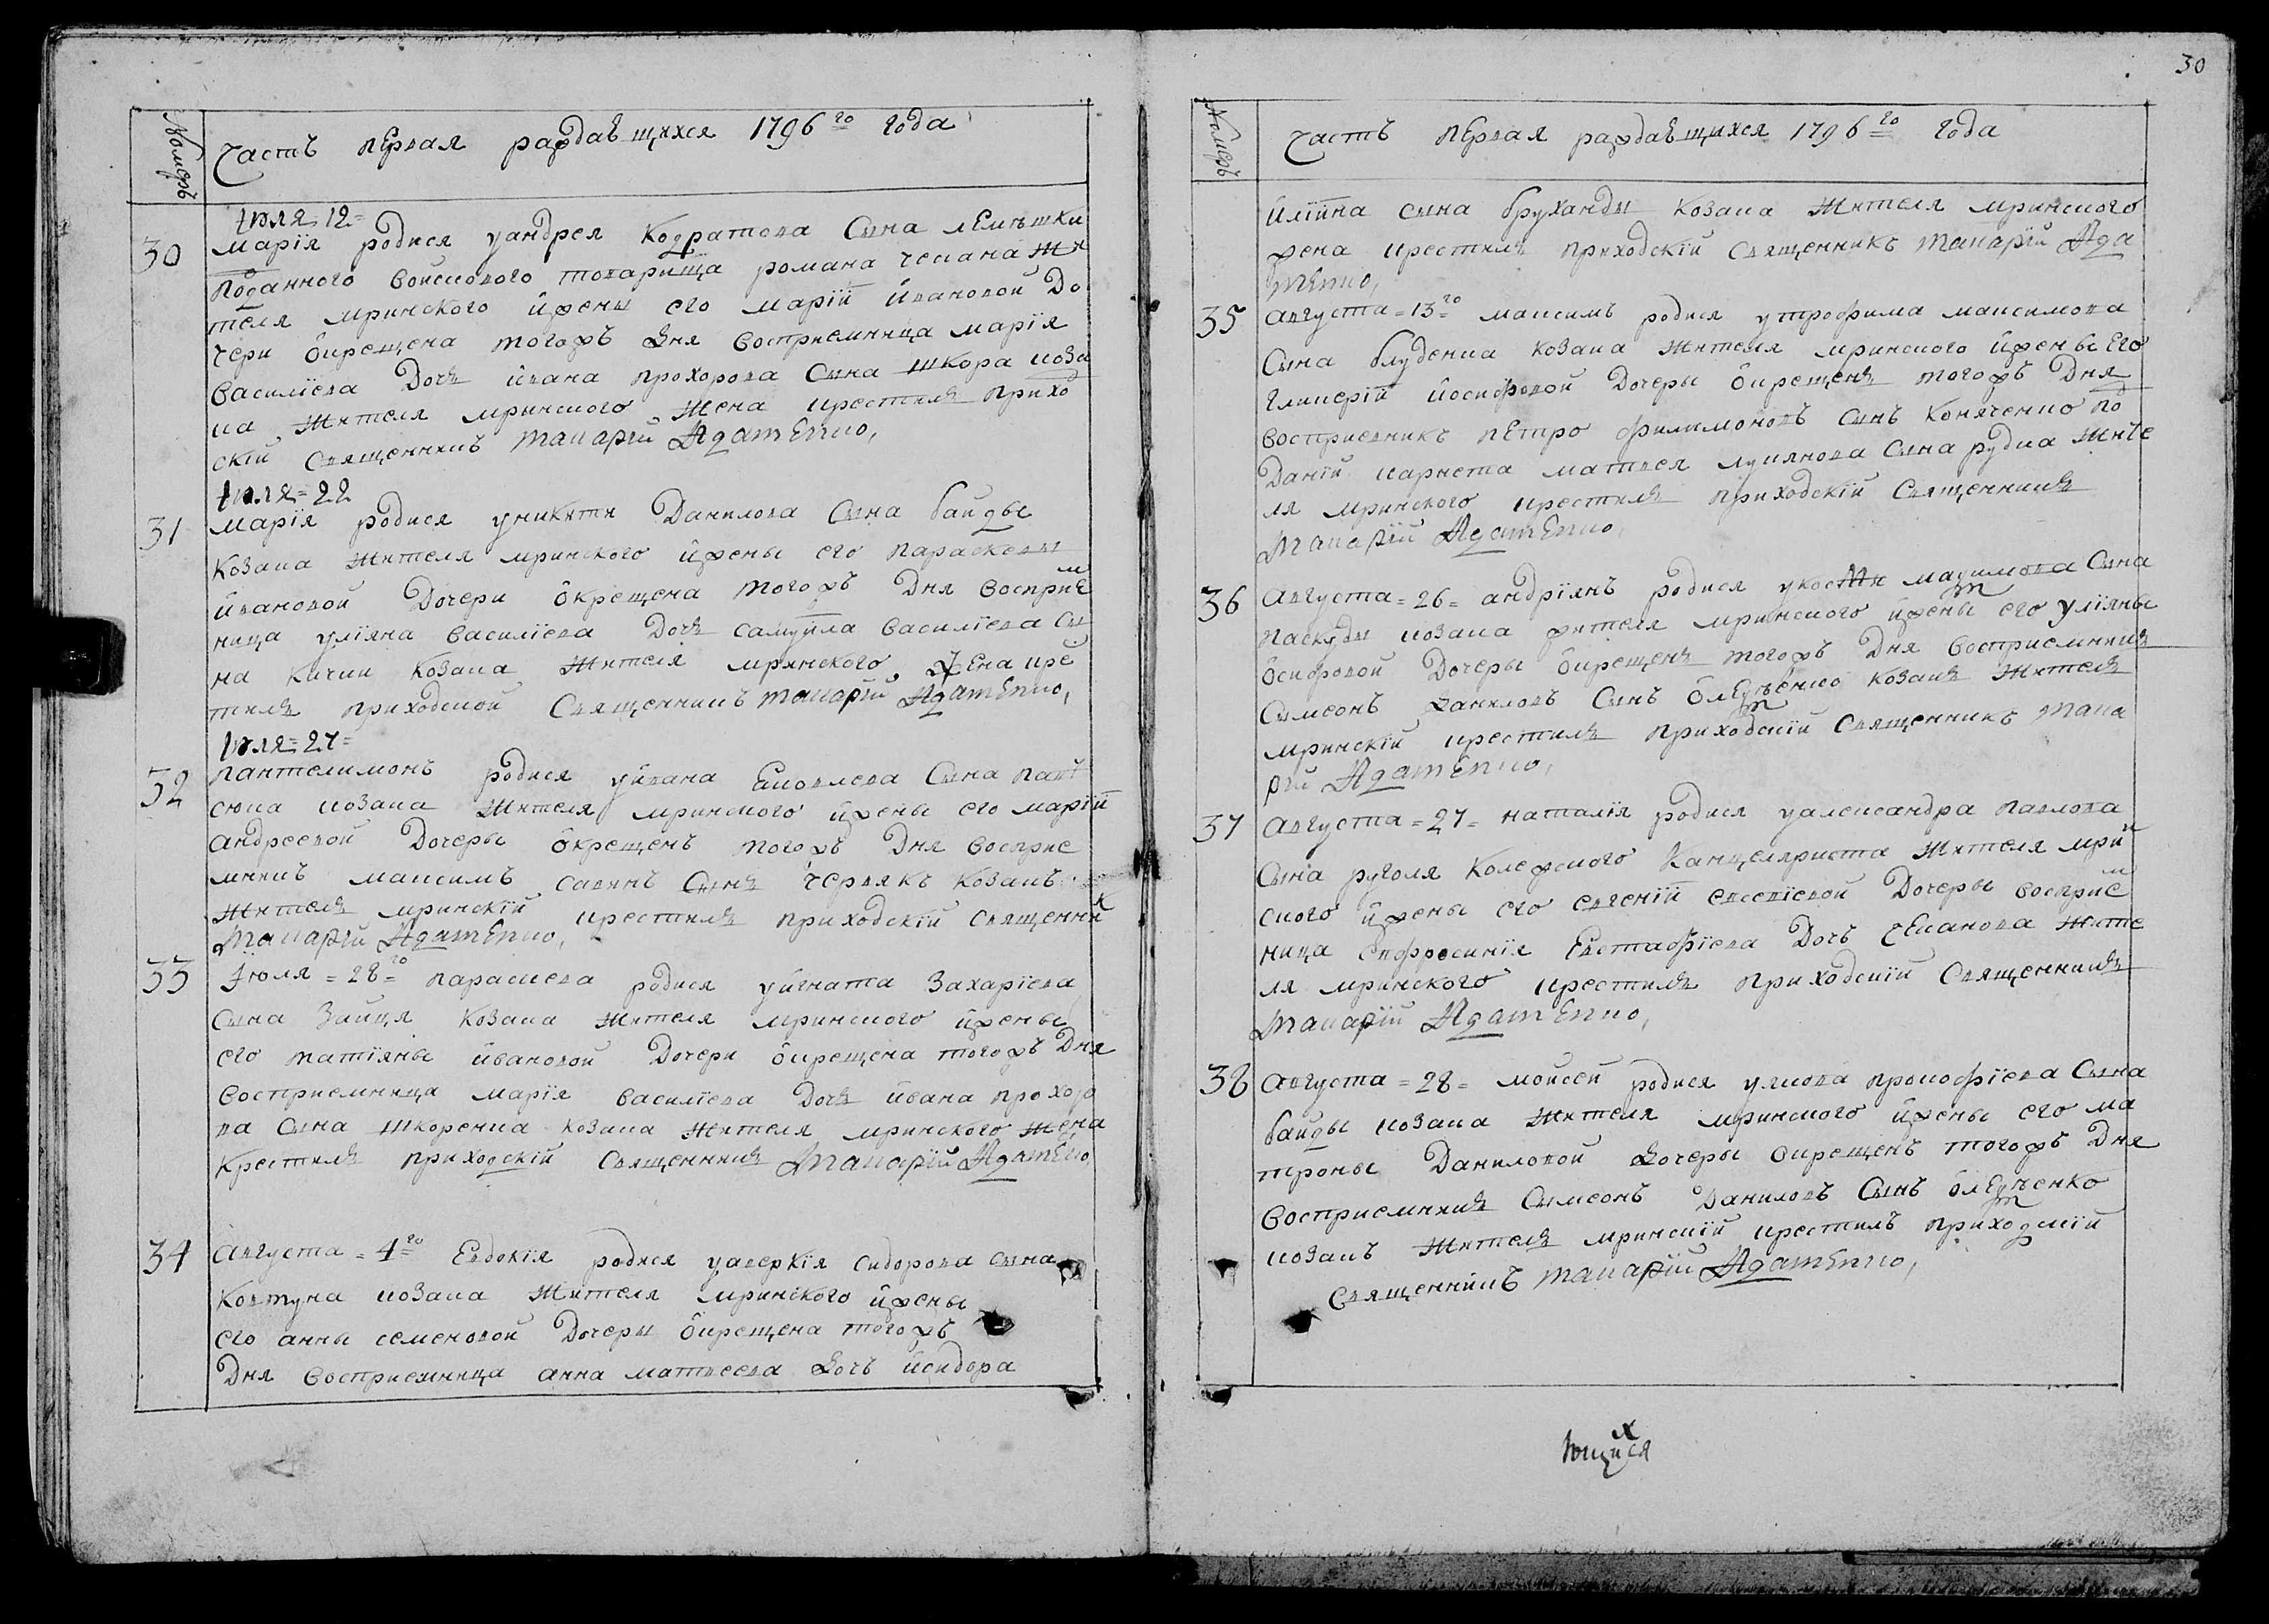 30
Номеръ
Часть первая раждающихся 1796го года
Июля 12=
30
марїя родися у андрея Кодратова Сына лемѣшки
поданного войскового товарища романа чекана жи
теля мринского и жены его марїй Ивановой До
чери окрещена тогожъ Дня восприемница марїя
василїева Дочъ ивана прохорова Сына шкора коза
ка жителя мринского жена крестилъ прихо
скїй священникъ макарїй Адаменко,
Июля=22
31
марїя родися у никити Данилова Сына байды
козака жителя мринского и жены его параскевы
ивановой Дочери окрещена тогожъ Дня восприем
ница улїяна василїева Дочъ самуйла василїева Сы
на кички козака жителя мринского жена кре
тилъ приходской Священникъ макарїй Адаменко,
Июля=27=
32
пантелимонъ родися у йвана Яковлева Сына пав
сюка козака жителя мринского и жены его марїй
андреевой Дочеры окрещенъ тогожъ Дня восприе
мникъ максимъ савинъ Сынъ червякъ козакъ
жителъ мринскїй крестилъ приходскїй священник
Макарїй Адаменко,
33
Июля=28=го параскева родися у йгната Захарїева
Сына Зайця козака жителя мринского и жены
его татїяны йвановой Дочери окрещена тогожъ Дня
восприемница марїя василїева Дочъ йвана прохоро
ва Сына шкоренка козака жителя мринского жена
крестилъ приходскїй Священникъ Макарїй Адаменко,
34
Августа=4=го Евдокїя родися у аверкїя сидорова сына
Ковтуна козака жителя мринского и жены
его анны семеновой Дочеры окрещена тогожъ
Дня восприемница анна матвеева Дочъ йсидора
Номеръ
Часть первая раждающихся 1796го года
йлїйна сына бруханды козака жителя мринского
жена крестилъ приходскїй священникъ макарїй Ада
менко,
35
августа=13=го максимъ родися у трофима максимова
Сына блуденка козака жителя мринского и жены Его
гликерїй йосифовой Дочеры окрещенъ тогожъ Дня
восприемникъ петро филимоновъ сынъ Коняченко по
данїй карнета матвея лукянова Сына рудка жите
ля мринского крестилъ приходскїй Священникъ
Макарїй Адаменко,
36
Августа=26= андрїянъ родися у костми Сына
паскуды козака жителя мринского и жены его улїяны
осиповой Дочеры окрещенъ тогожъ Дня восприемникъ
Сымеонъ Даниловъ Сынъ козакъ жителъ
мринскїй крестилъ приходскїй Священникъ мака
рїй Адаменко,
37
Августа=27= наталїя родися у александра павлова
Сына руголя Колежского Канцеляриста жителя мрин
ского и жены его евгенїй евсевїевой Дочеры восприем
ница Евфросинїя Евстафїева Дочъ чеканова жите
ля мринского крестилъ приходскїй Священникъ
Макарїй Адаменко,
38
Августа=28= мойсей родися у якова прокофїева Сына
байды козака жителя мринского и жены его ма
троны Даниловой Дочеры окрещенъ тогожъ Дня
восприемникъ Сымеонъ Даниловъ Сынъ
козакъ жителъ мринскїй крестилъ приходскїй
Священникъ макарїй Адаменко,
ющихся